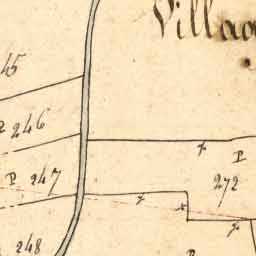 Villag
45
246
P
P 247
272
248
P